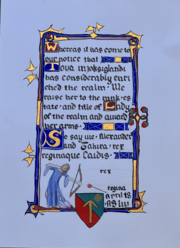 Whereas it has come to
our notice that
has considerably enri
ched the realm. We
raise her to the
tate and title of Lady
of the realm and award
her arms.
So say we. Alexander
and Tahira. rex
reginaque Caidis.
rex
regina
april 18